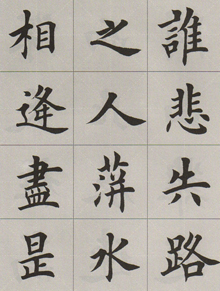 誰悲失路
之人萍水
相逢盡是